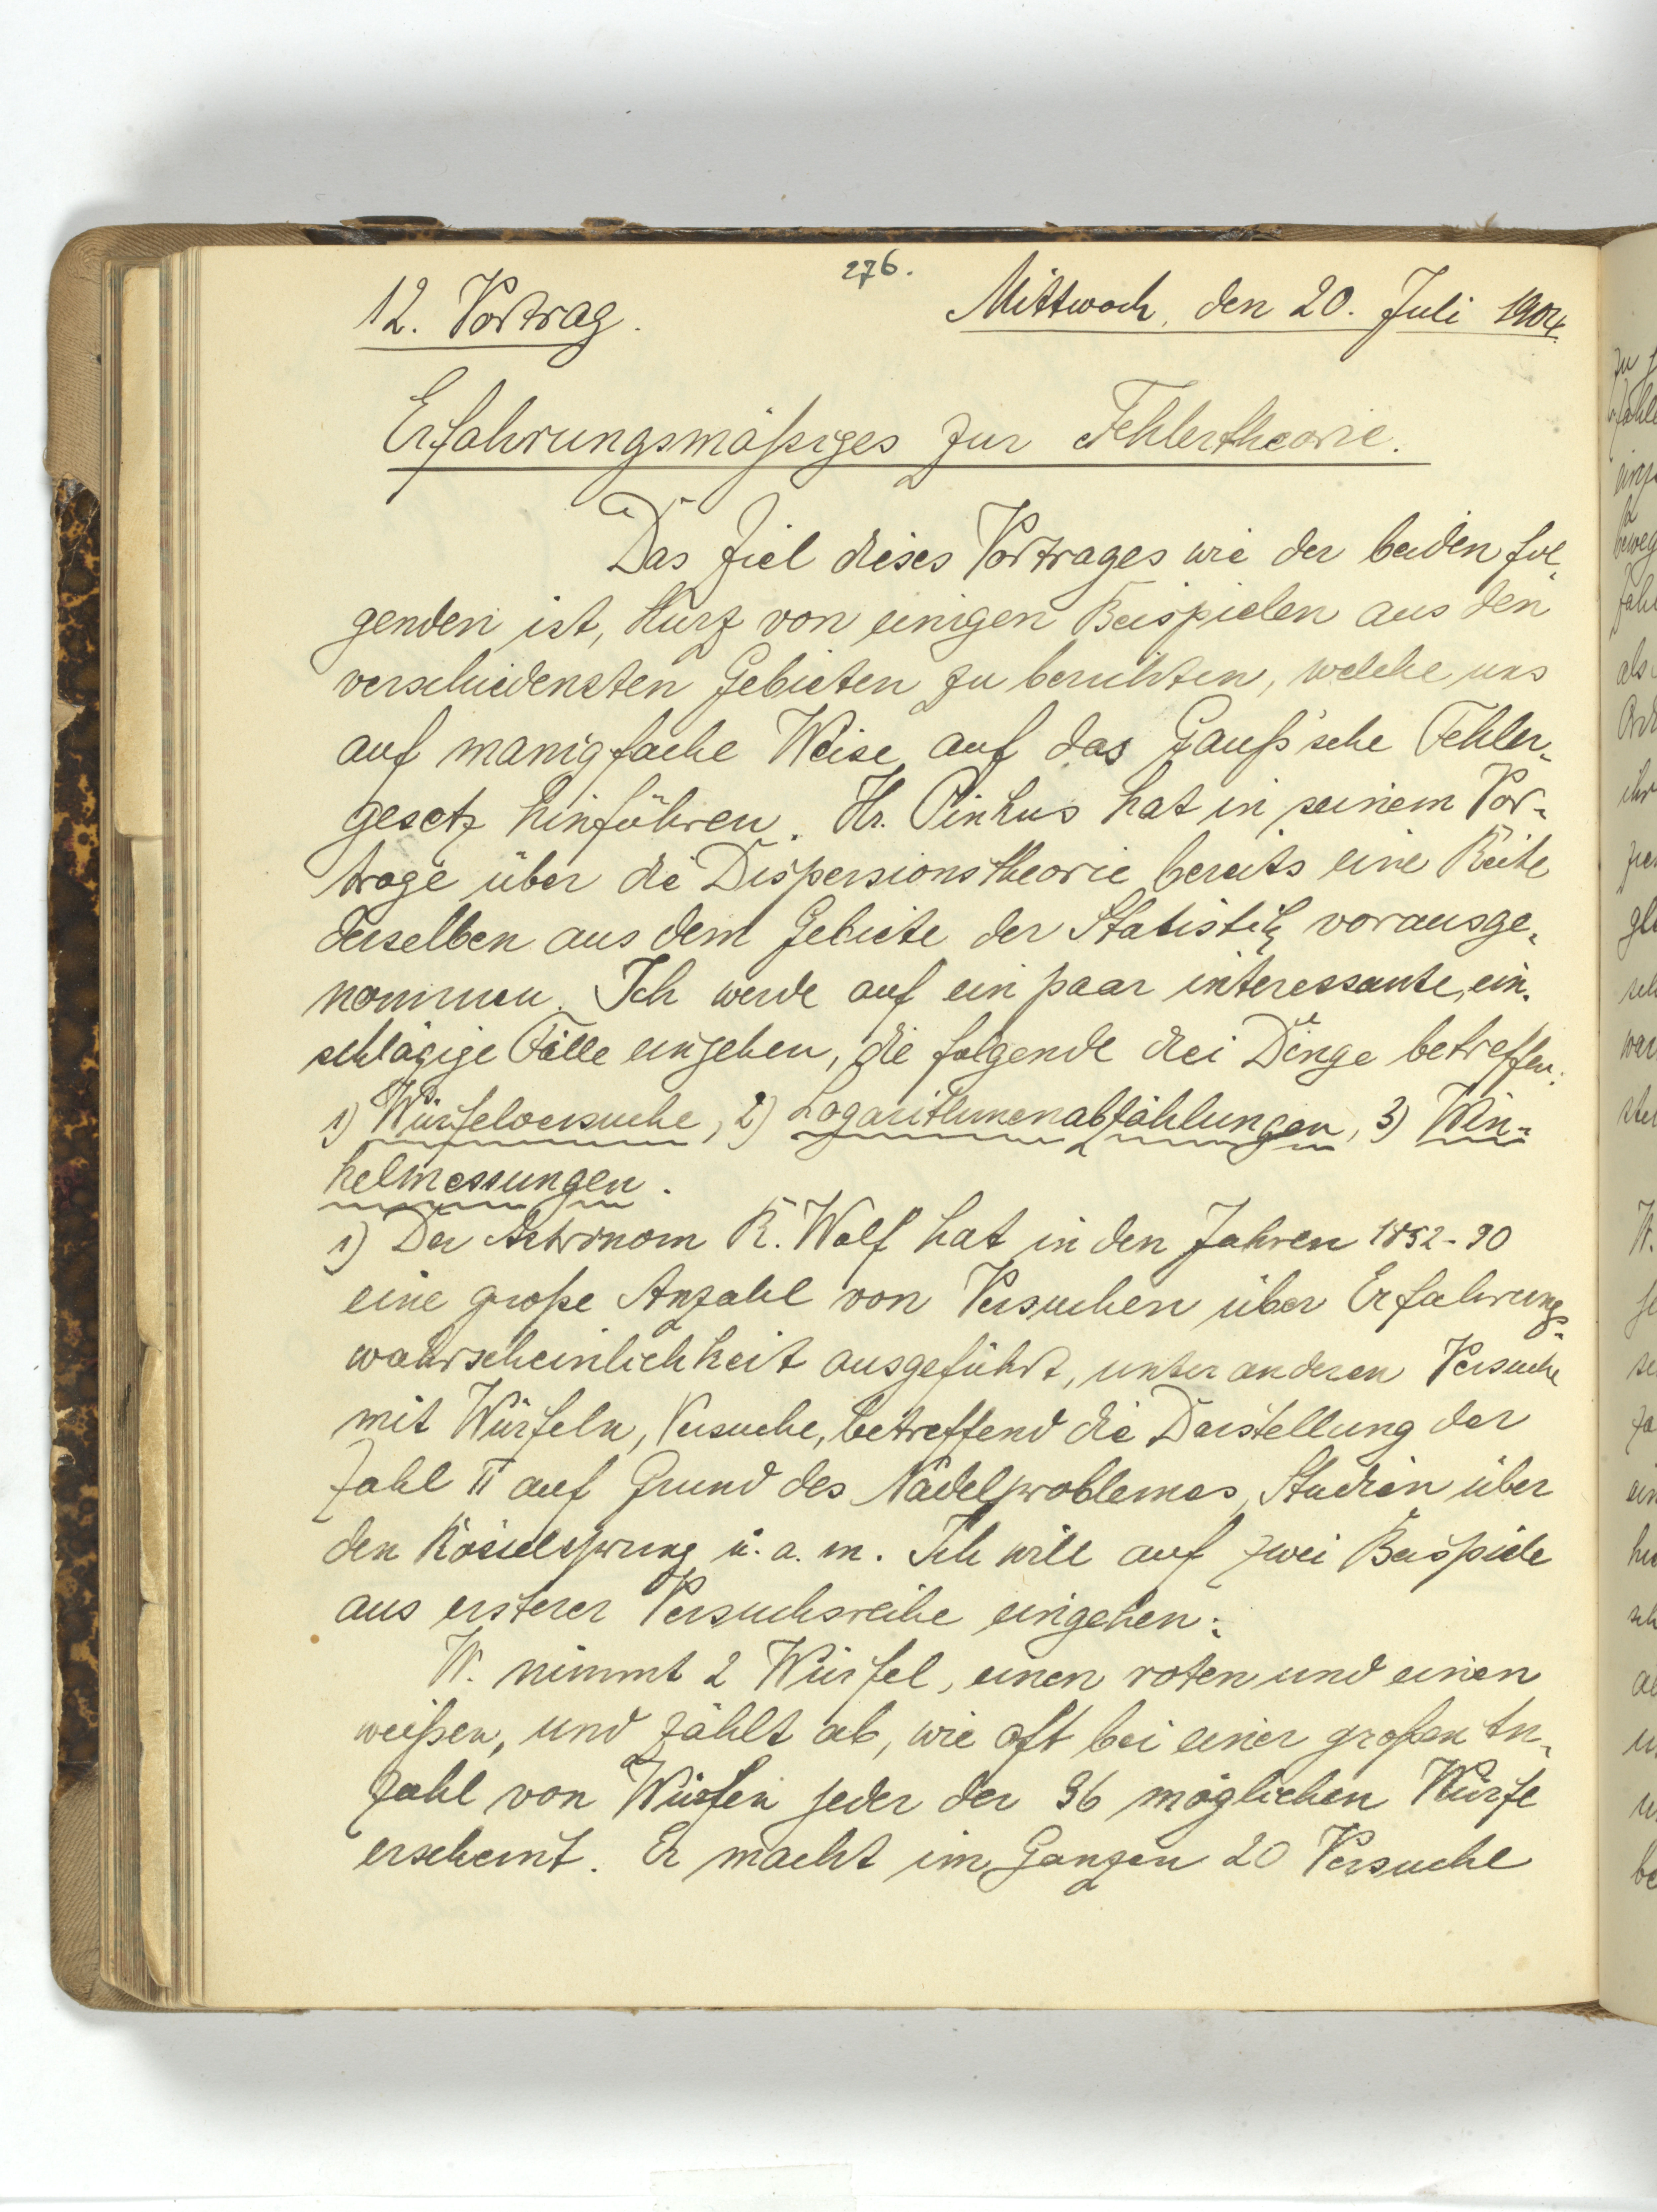 276.
12. Vortrag. Mittwoch, den 20. Juli 1904.
Erfahrungsmäßiges zur Fehlertheorie.
Das Ziel dieses Vortrages wie der beiden fol-
genden ist, kurz von einigen Beispielen aus den
verschiedensten Gebieten zu berichten, welche uns
auf manigfache Weise auf das Gauß'sche Fehler-
gesetz hinführen. Hr. Pinkus hat in seinem Vor-
trage über die Dispersionstheorie bereits eine Reihe
derselben aus dem Gebiete der Statistik vorausge-
nommen. Ich werde auf ein paar interessante, ein-
schlägige Fälle eingehen, die folgende drei Dinge betreffen:
1) Würfelversuche, 2) Logarithmenabzählungen, 3) Win-
kelmessungen.
1) Der Astronom R. Wolf hat in den Jahren 1852-90
eine große Anzahl von Versuchen über Erfahrungs-
wahrscheinlichkeit ausgeführt, unter anderen Versuche
mit Würfeln, Versuche, betreffend die Darstellung der
Zahl π auf Grund des Nadelproblemes, Studien über
den Rösselsprung u. a. m. Ich will auf zwei Beispiele
aus ersterer Versuchsreihe eingehen:
W. nimmt 2 Würfel, einen roten und einen
weißen, und zählt ab, wie oft bei einer großen An-
zahl von Würfen jeder der 36 möglichen Würfe
erscheint. Er macht im Ganzen 20 Versuche